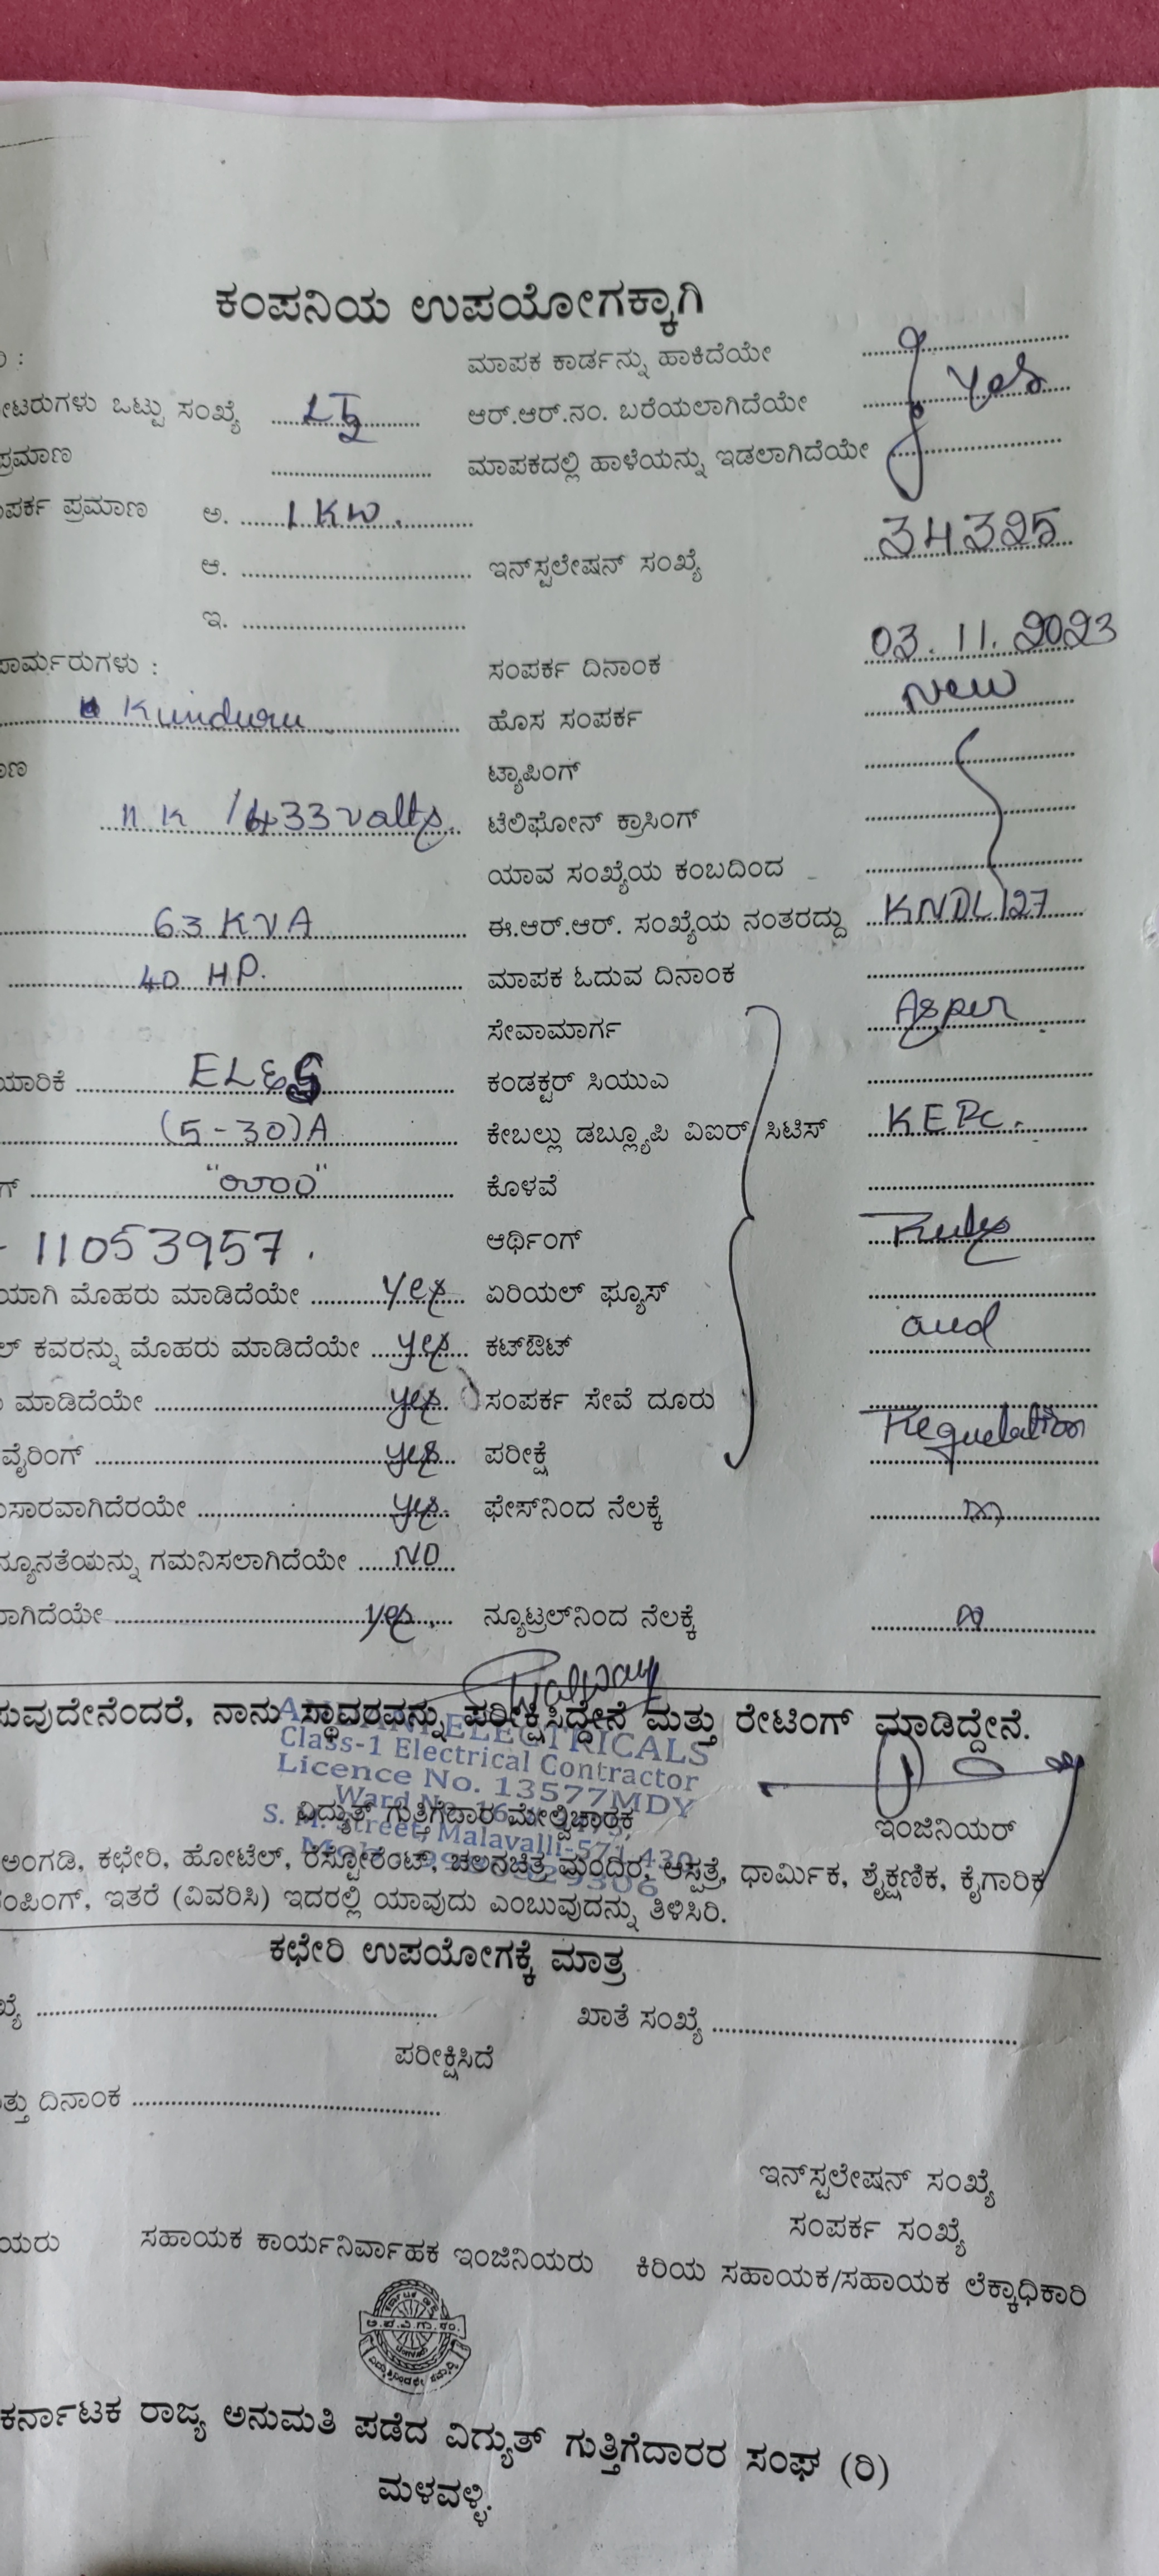 ಕಂಪನಿಯ ಉಪಯೋಗಕ್ಕಾಗಿ
ಮಾಪಕ ಕಾರ್ಡನ್ನು ಹಾಕಿದೆಯೇ
ಒಟ್ಟು ಸಂಖ್ಯೆ ಆರ್.ಆರ್.ನಂ. ಬರೆಯಲಾಗಿದೆಯೇ Yes
ಪ್ರಮಾಣ ಮಾಪಕದಲ್ಲಿ ಹಾಳೆಯನ್ನು ಇಡಲಾಗಿದೆಯೇ
ಪ್ರಮಾಣ ಅ. 1 KW.
ಆ. ಇನ್‌ಸ್ಟಲೇಷನ್ ಸಂಖ್ಯೆ 34325
ಇ.
ಸಂಪರ್ಕ ದಿನಾಂಕ 03.11.2023
Kunduru ಹೊಸ ಸಂಪರ್ಕ New
ಟ್ಯಾಪಿಂಗ್
11 K /433 volts. ಟೆಲಿಫೋನ್ ಕ್ರಾಸಿಂಗ್
ಯಾವ ಸಂಖ್ಯೆಯ ಕಂಬದಿಂದ
63 KVA ಈ.ಆರ್.ಆರ್. ಸಂಖ್ಯೆಯ ನಂತರದ್ದು KNDL127
40 HP. ಮಾಪಕ ಓದುವ ದಿನಾಂಕ
ಸೇವಾಮಾರ್ಗ As per
ಕಂಡಕ್ಟರ್ ಸಿಯುಎ
(5-30)A ಕೇಬಲ್ಲು ಡಬ್ಲ್ಯೂಪಿ ವಿಐರ್ ಸಿಟಿಸ್ KEPC.
ಕೊಳವೆ
11053957. ಆರ್ಥಿಂಗ್ Rules
ಮೊಹರು ಮಾಡಿದೆಯೇ yes ಏರಿಯಲ್ ಫ್ಯೂಸ್
ಕವರನ್ನು ಮೊಹರು ಮಾಡಿದೆಯೇ yes ಕಟ್‌ಔಟ್ and
ಮಾಡಿದೆಯೇ yes ಸಂಪರ್ಕ ಸೇವೆ ದೂರು
ವೈರಿಂಗ್ yes ಪರೀಕ್ಷೆ Reguelation
yes ಫೇಸ್‌ನಿಂದ ನೆಲಕ್ಕೆ
ಗಮನಿಸಲಾಗಿದೆಯೇ NO
yes ನ್ಯೂಟ್ರಲ್‌ನಿಂದ ನೆಲಕ್ಕೆ
ನಾನು ಸ್ಥಾವರವನ್ನು ಪರೀಕ್ಷಿಸಿದ್ದೇನೆ ಮತ್ತು ರೇಟಿಂಗ್ ಮಾಡಿದ್ದೇನೆ.
ELECTRICALS
Class-1 Electrical Contractor
Licence No. 13577MDY
ವಿದ್ಯುತ್ ಗುತ್ತಿಗೆದಾರ ಮೇಲ್ವಿಚಾರಕ
Street, Malavalli-571 430
ಇಂಜಿನಿಯರ್
ಅಂಗಡಿ, ಕಛೇರಿ, ಹೋಟೆಲ್, ರೆಸ್ಟೋರೆಂಟ್, ಚಲನಚಿತ್ರ ಮಂದಿರ, ಆಸ್ಪತ್ರೆ, ಧಾರ್ಮಿಕ, ಶೈಕ್ಷಣಿಕ, ಕೈಗಾರಿಕ
ಇತರೆ (ವಿವರಿಸಿ) ಇದರಲ್ಲಿ ಯಾವುದು ಎಂಬುವುದನ್ನು ತಿಳಿಸಿರಿ.
ಕಛೇರಿ ಉಪಯೋಗಕ್ಕೆ ಮಾತ್ರ
ಖಾತೆ ಸಂಖ್ಯೆ
ಪರೀಕ್ಷಿಸಿದೆ
ದಿನಾಂಕ
ಇನ್‌ಸ್ಟಲೇಷನ್ ಸಂಖ್ಯೆ
ಸಂಪರ್ಕ ಸಂಖ್ಯೆ
ಸಹಾಯಕ ಕಾರ್ಯನಿರ್ವಾಹಕ ಇಂಜಿನಿಯರು ಕಿರಿಯ ಸಹಾಯಕ/ಸಹಾಯಕ ಲೆಕ್ಕಾಧಿಕಾರಿ
ಕರ್ನಾಟಕ ರಾಜ್ಯ ಅನುಮತಿ ಪಡೆದ ವಿಗ್ಯುತ್ ಗುತ್ತಿಗೆದಾರರ ಸಂಘ (ರಿ)
ಮಳವಳ್ಳಿ.